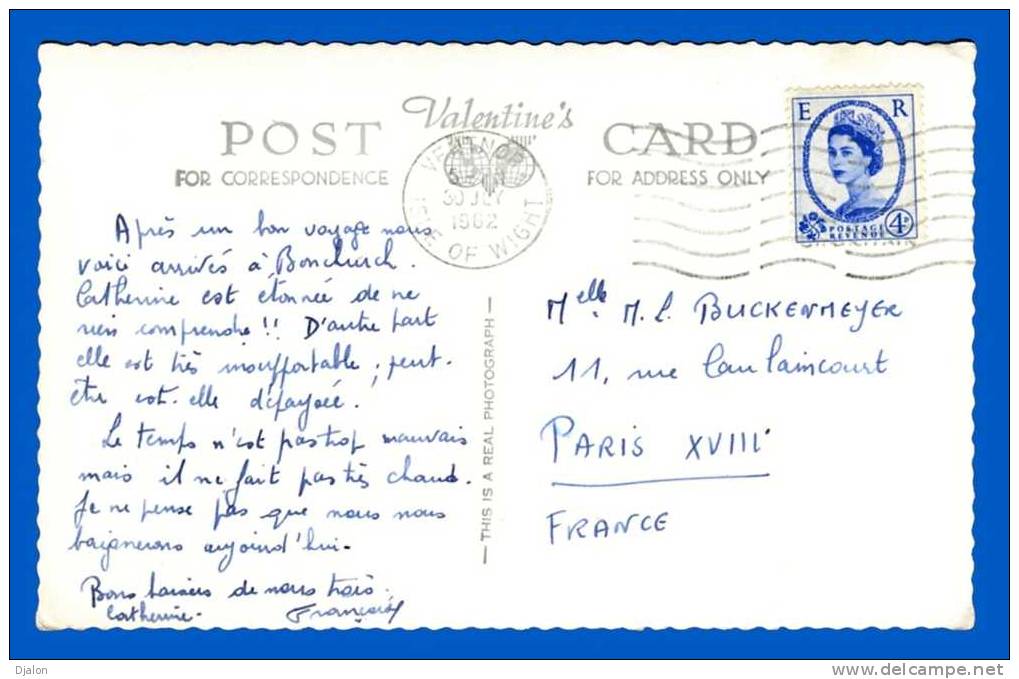 POST Valentine's CARD
FOR CORRESPONDENCE FOR ADDRESS ONLY
VENTNOR
30 JLY
1962
ISLE OF WIGHT
E R
POSTAGE
REVENUE
4D
Après un bon voyage nous
voici arrivés à Bonchurch.
Catherine est étonnée de ne
rien comprendre !! D'autre part
elle est très insupportable ; peut-
être est-elle dépaysée.
Le temps n'est pas trop mauvais
mais il ne fait pas très chaud.
Je ne pense pas que nous nous
baignerons aujourd'hui-
Bons baisers de nous trois.
Catherine- 
THIS IS A REAL PHOTOGRAPH
Melle. M. L. BUCKENMEYER
11, rue Caulaincourt
PARIS XVIII
FRANCE
Djalon
http://www.delcampe.net